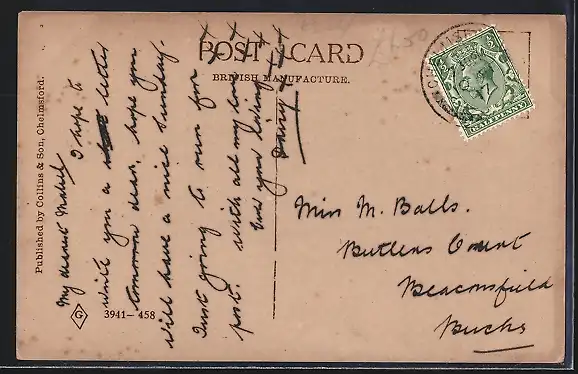 POST CARD
BRITISH MANUFACTURE.
Published by Collins & Son, Chelmsford.
G
3941-458
My dearest Mabel
I hope to
write you a letter
tomorrow dear, hope you
will have a nice Sunday.
Just going to run for
post. With all my love
Ever your loving
Miss M. Balls.
Butlers Court
Beaconsfield
Bucks